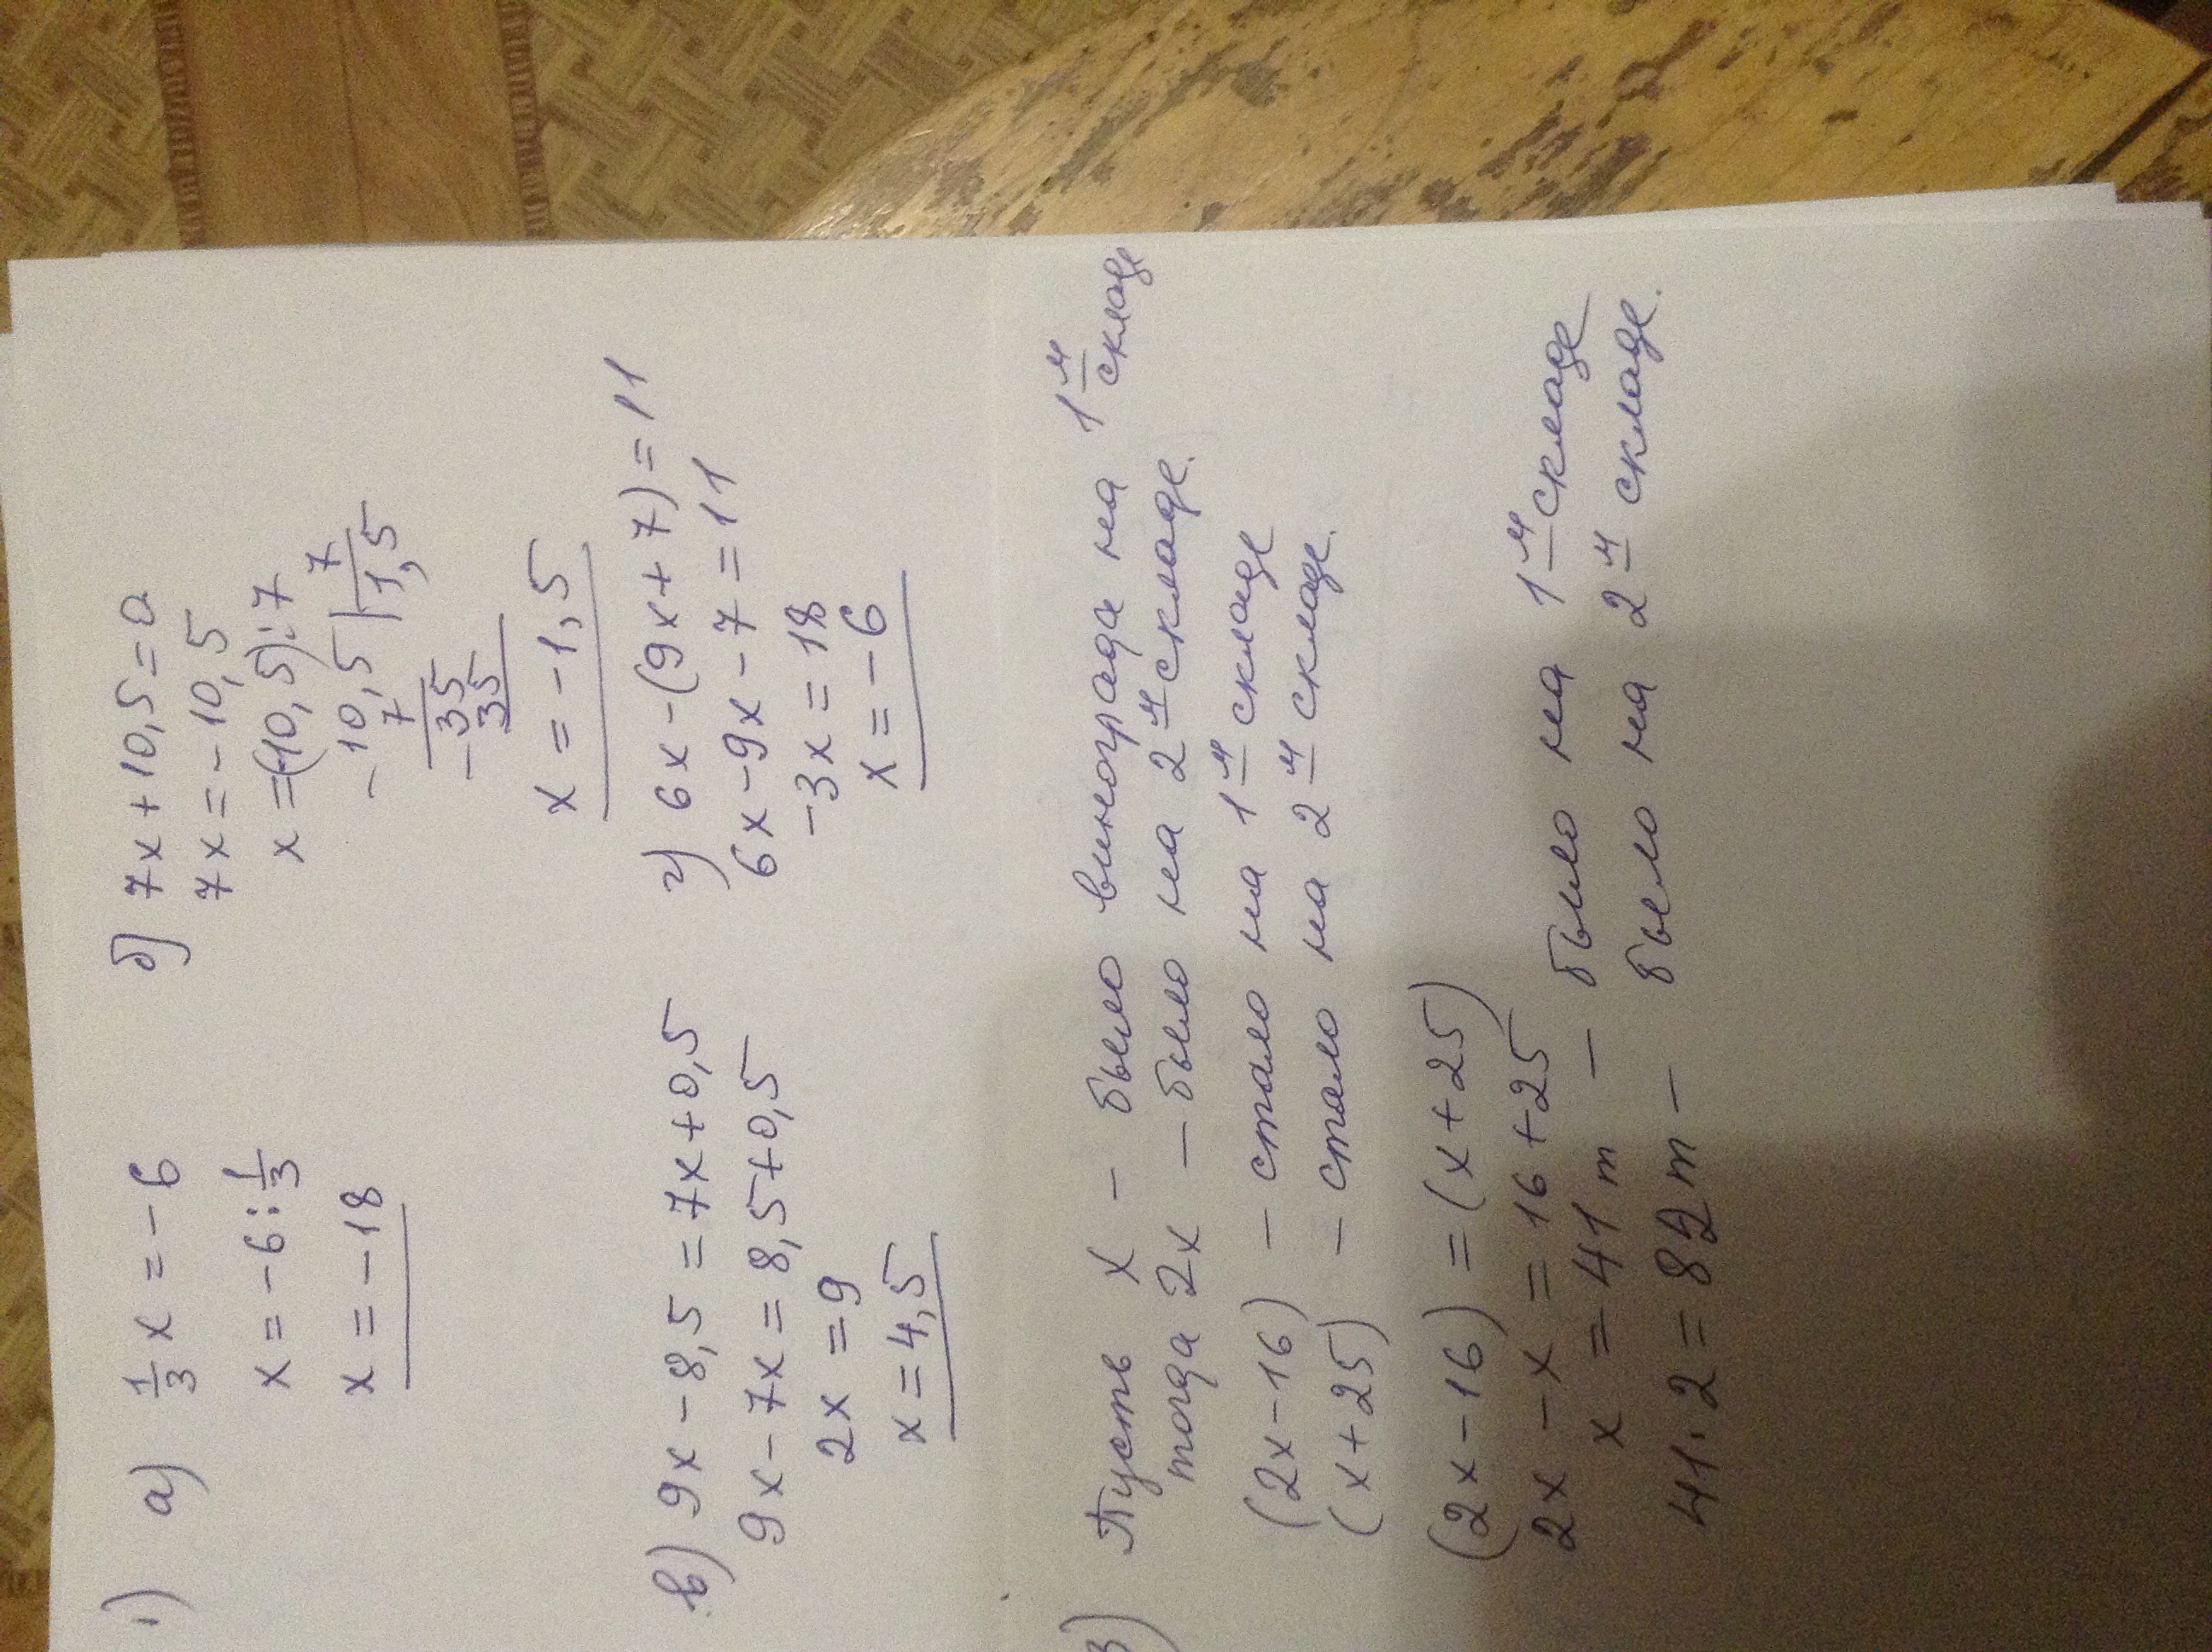 1) а) 1/3 x = -6
x = -6 : 1/3
x = -18
б) 7x + 10,5 = 0
7x = -10,5
x = (-10,5) : 7
-10,5 | 7
7 1,5
-35
35
x = -1,5
в) 9x - 8,5 = 7x + 0,5
9x - 7x = 8,5 + 0,5
2x = 9
x = 4,5
г) 6x - (9x + 7) = 11
6x - 9x - 7 = 11
-3x = 18
x = -6
3) Пусть x - было винограда на 1м складе
тогда 2x - было на 2м складе.
(2x - 16) - стало на 1м складе
(x + 25) - стало на 2м складе.
(2x - 16) = (x + 25)
2x - x = 16 + 25
x = 41 т - было на 1м складе
41 · 2 = 82 т - было на 2м складе.